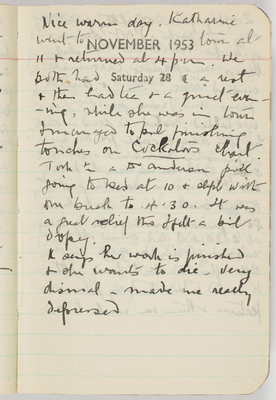 Nice warm day. Katharine
went to town at
NOVEMBER 1953
11 & returned at 4 p.m. We
both had a rest
Saturday 28
& then had tea & a quiet even-
-ing, while she was in town
I managed to put finishing
touches on Cockatoos chart.
Took a Dr Anderson pill
going to bed at 10 & slept with
one break to 4.30. It was
a great relief tho I felt a bit
dopey.
K says her work is finished
& she wants to die. Very
dismal - made me really
depressed